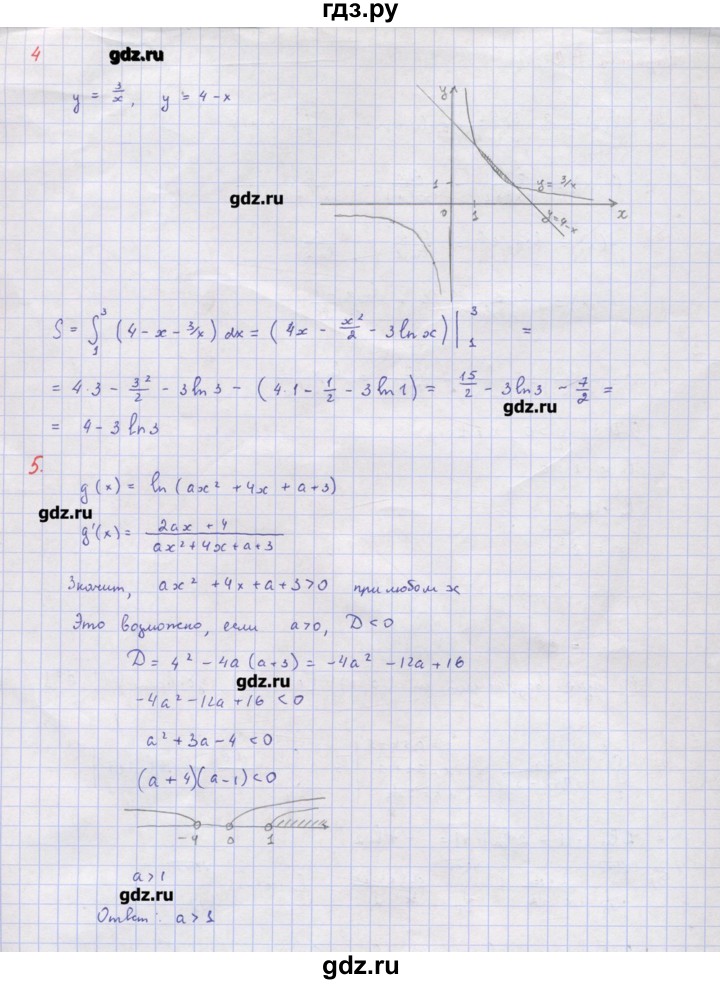 гдз.ру
gdz.ru
4
y = 3/x, y = 4 - x
y
gdz.ru
1
y = 3/x
0
1
x
y=4-x
S = ∫₁³ (4 - x - 3/x) dx = (4x - x²/2 - 3 ln x) |₁³ =
= 4·3 - 3²/2 - 3 ln 3 - (4·1 - 1/2 - 3 ln 1) = 15/2 - 3 ln 3 - 7/2 =
gdz.ru
= 4 - 3 ln 3
5.
g(x) = ln(ax² + 4x + a + 3)
gdz.ru
g'(x) = (2ax + 4)/(ax² + 4x + a + 3)
Значит, ax² + 4x + a + 3 > 0 при любом x
Это возможно, если a>0, D<0
D = 4² - 4a(a+3) = -4a² - 12a + 16
gdz.ru
-4a² - 12a + 16 < 0
a² + 3a - 4 < 0
(a + 4)(a - 1) < 0
-4 0 1
a > 1
gdz.ru
Ответ: a > 1
gdz.ru